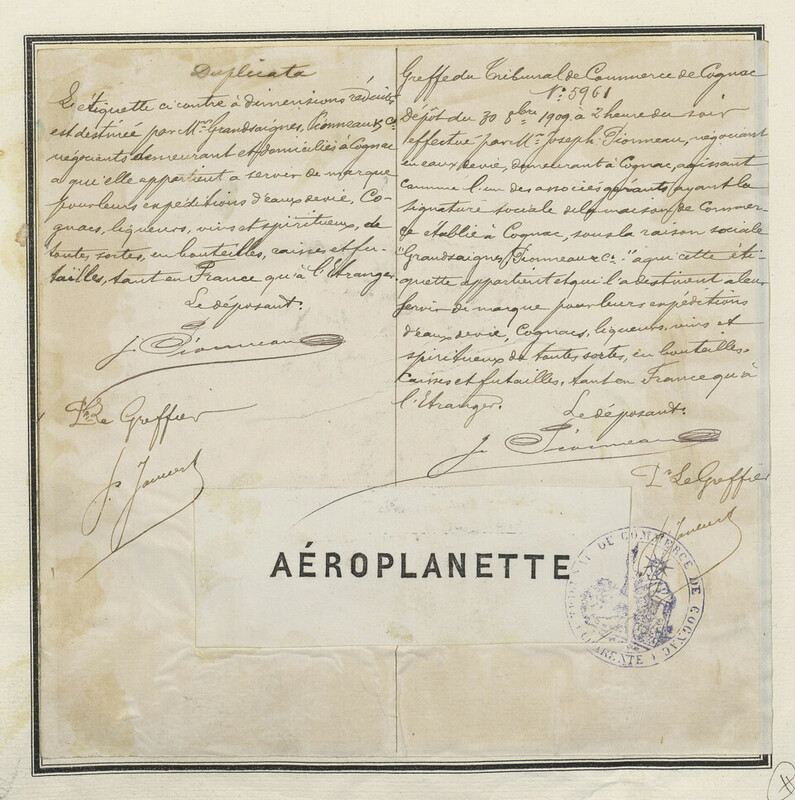 Duplicata
L'étiquette ci contre à dimensions réduites
est destinée par Mrs Grandsaignes, Pionneau & Cie
négociants demeurant et domiciliés à Cognac
a qu'elle appartient a server de marque
pour leurs expéditions d'eaux devie, Co-
gnacs, liqueurs, vins et spiritueux, de
toutes sortes, en bouteilles, caisses et fu-
tailles, tant en France qu'à l'Etranger.
Le déposant.
J. Pionneau
Pr Le Greffier
Greffe du Tribunal de Commerce de Cognac
No 5961
Dépôt du 30 8bre 1909, à 2 heure du soir
effectué par Mr Joseph Pionneau, négociant
en eaux devie, demeurant à Cognac, agissant
comme l'un des associés gérants ayant la
signature sociale de la maison de Commer-
ce etablie à Cognac, sous la raison sociale
"Grandsaignes, Pionneau & Cie" à qui cette éti-
quette appartient et qui l'a destinent a leur
servir de marque pour leurs expéditions
d'eaux devie, Cognacs, liqueurs, vins et
spiritueux de toutes sortes, en bouteilles,
caisses et futailles, tant en France qu'à
l'Etranger.
Le déposant.
J. Pionneau
Pr Le Greffier
AÉROPLANETTE
TRIBUNAL DE COMMERCE DE COGNAC
(CHARENTE)